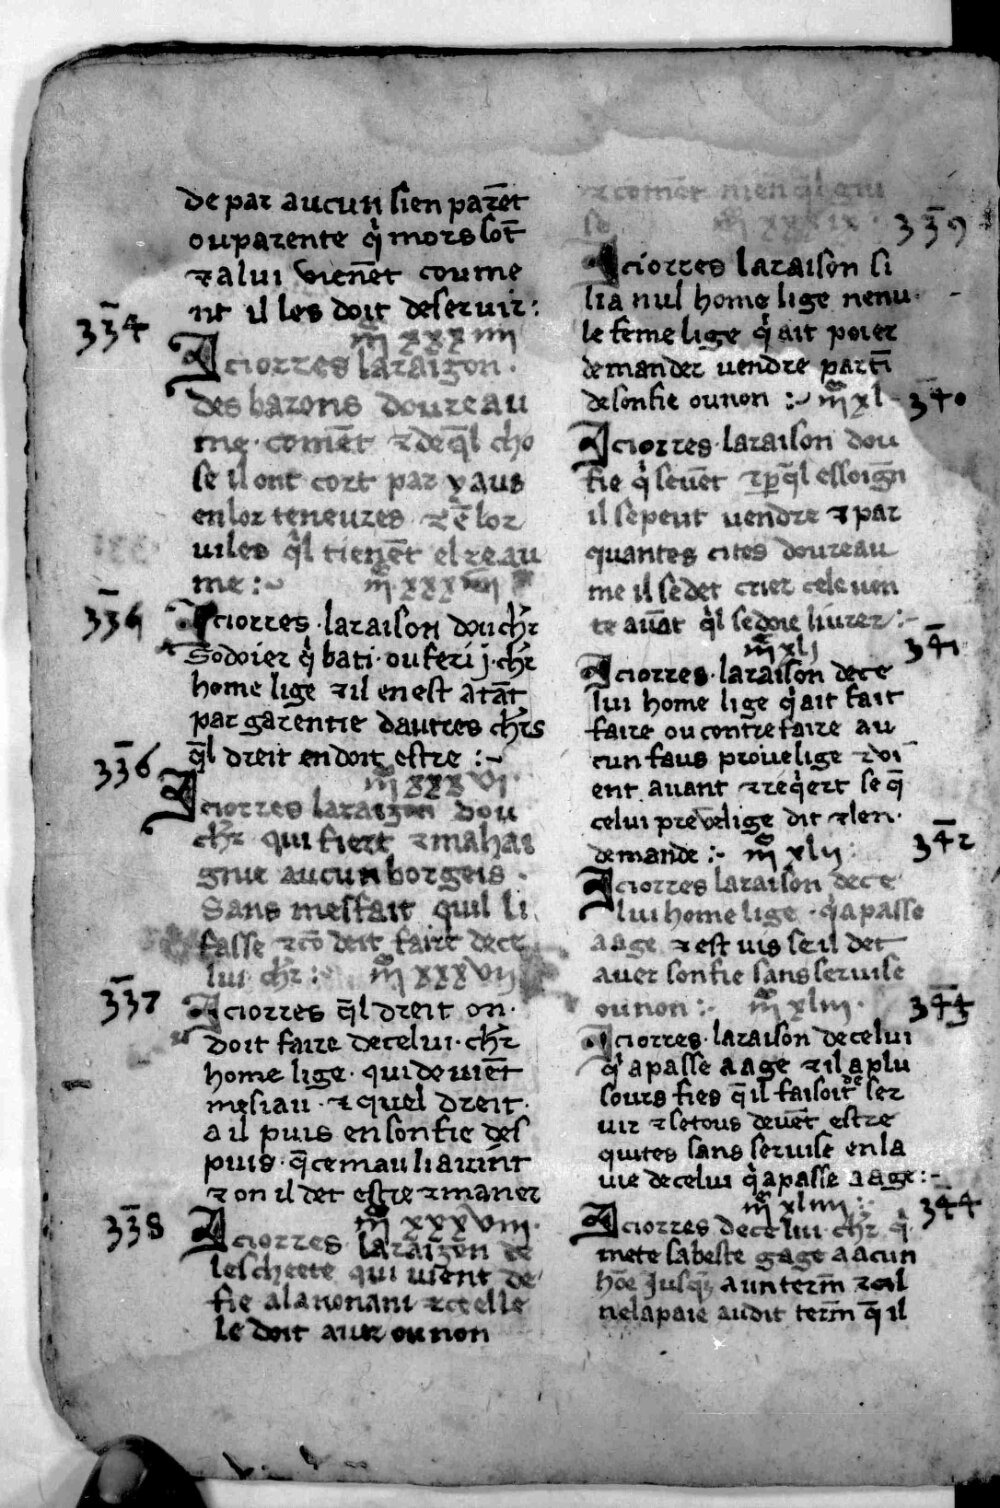 de par aucun sien parēt
ou parente q̇ mors sōt
⁊ a lui vienēt coume
nt il les doit deservir :
334
m̄ xxx iiii
Aci orres la raizon ·
des barons dou reau
me · comēt ⁊ de q̄l cho
se il ont cort par yaus
en lor teneures ⁊ ē lor
viles q̇l tienēt el reau
me :
336
Aci orres · la raison dou chr̄
Sodoier q̇ bati · ou feri j · chr̄
home lige ⁊ il en est atāt
par garentie dautres chr̄s
q̄l dreit en doit estre :~
336
m̄ xxx vi ·
Aci orres la raizon dou
chr̄ qui fiert ⁊ mahai
gnie aucun borgeis ·
Sans mesfait quil li
fasse ⁊ cō deit faire dece
lui chr̄ : m̄ xxx vii
337
Aci orres q̄l dreit on ·
doit faire de celui · chr̄
home lige · qui devient
mesiau · ⁊ quel dreit ·
a il puis en son fie des
puis · q̄ ce mau li avint
⁊ on il det estre ⁊ maner
338
m̄ xxx viii ·
Aci orres la raizon de
les cheete qui vient de
fie a la nonani ⁊ ce elle
le doit aver ou non
⁊ comēt
se m̄ xxx ix ·
339
Aci orres la raison si
lia nul home lige ne nu
le feme lige q̇ ait poier
demander vendre partī
de son fie ou non :~ m̄ xl
340
Aci orres · la raison dou
fie q̇ se vēt ⁊ p q̄l essoigñ
il se peut vendre ⁊ par
quantes cites dou reau
me il se det crier cele ven
te avāt q̇l se doie livrer :~
m̄ xli
341
Aci orres · la raison de ce
lui home lige q̇ ait fait
faire ou contrefaire au
cun faus proive lige ⁊ vi
ent avant ⁊ reqert se q̄
celui preve lige dit ⁊ len ·
demande :~ m̄ xlii
342
Aci orres la raison de ce
lui home lige · q̇ a passe
aage ⁊ est vis se il det
aver son fie sans servise
ou non :~ m̄ xliii ·
343
Aci orres · la raison de celui
q̇ a passe aage ⁊ il a plu
sours fies q̄ il faisoit de ser
vir ⁊ se tous devēt estre
quites sans servise en la
vie de celui q̇ a passe aage :~
m̄ xliiii :
344
Aci orres de ce lui chr̄ q̇ ·
mete sa beste gage a acun
hōe jusq̄ a un term̄ ⁊ cil
ne la paie audit term̄ q̄ il